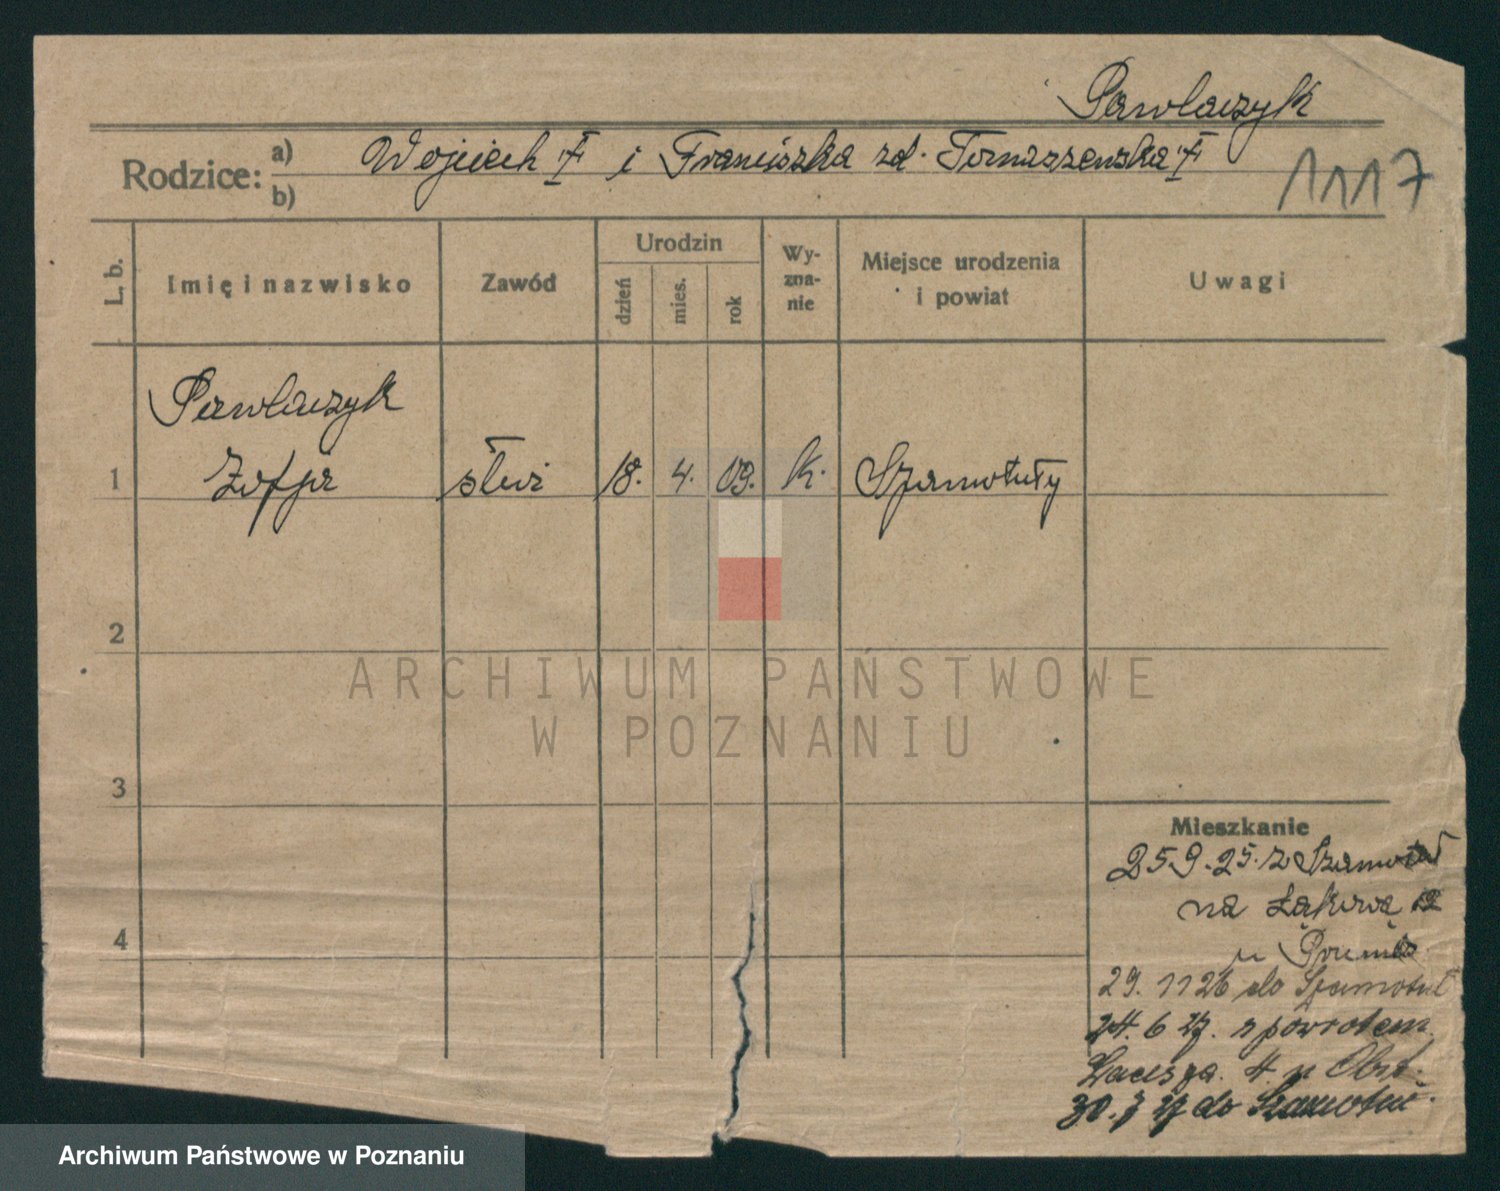 Pawlaczyk
Rodzice: a) Wojciech † i Franciszka zd. Tomaszewska †
b)
1117
L. b.
Imię i nazwisko
Zawód
Urodzin
dzień
mies.
rok
Wy-
zna-
nie
Miejsce urodzenia
i powiat
Uwagi
Pawlaczyk
1 Zofja służ 18. 4. 09. k. Szamotuły
2
3
4
Mieszkanie
25 9. 25. z Szamotuł
na Łąkową 12
u
29. 11 26 do Szamotuł
24. 6 27. z powrotem
4. u
30. 7 27 do Szamotuł.
ARCHIWUM PAŃSTWOWE
W POZNANIU
Archiwum Państwowe w Poznaniu